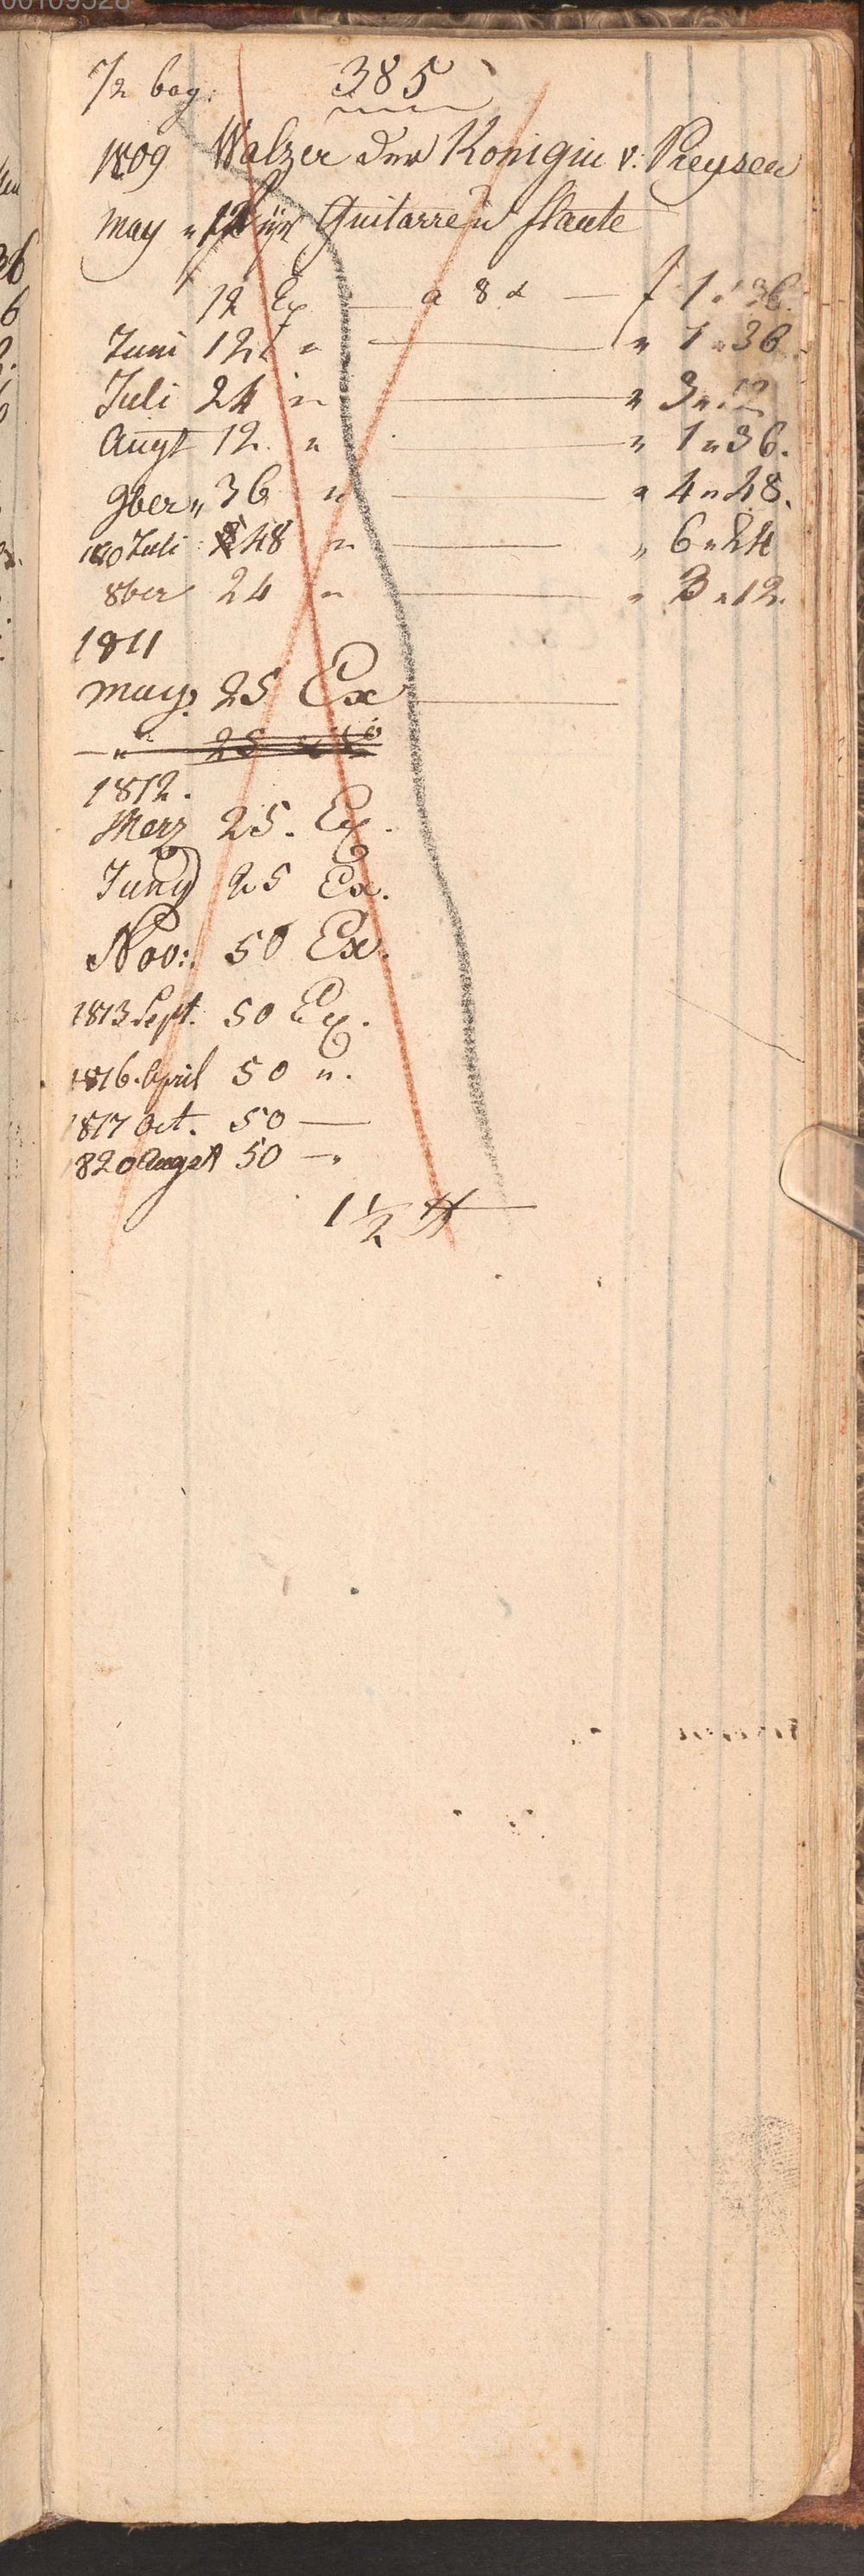 00109528
1/2 bog. 385
1809 Walzer der Königin v. Preysen
may " für Guitarre u flaute
12 Ex — a 8 x — f 1 " 36.
Juni 12 " — " 1 " 36.
Juli 24 " — " 3 " 12
Augt 12. " — " 1 " 36.
9ber " 36 " — " 4 " 48.
1810 Juli 48 " — " 6 " 24
8ber 24 " — " 3 " 12.
1811
may. 25 Ex —
— " 25
1812.
Merz 25. Ex.
Juny 25 Ex.
Nov:. 50 Ex.
1813 Sept. 50 Ex.
1816. April 50 ".
1817 Oct. 50 —
1820 August 50 — "
1 1/2